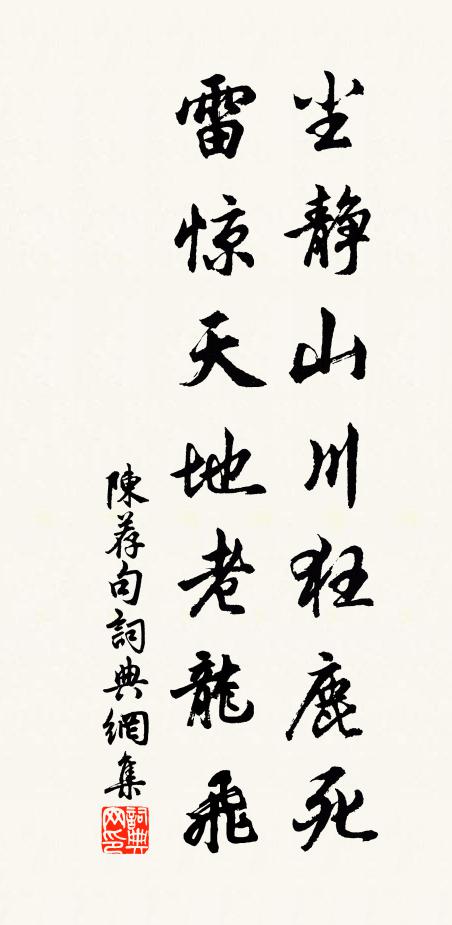 尘静山川狂鹿死
雷惊天地老龍飛
陳荐句詞典網集
詞典网印